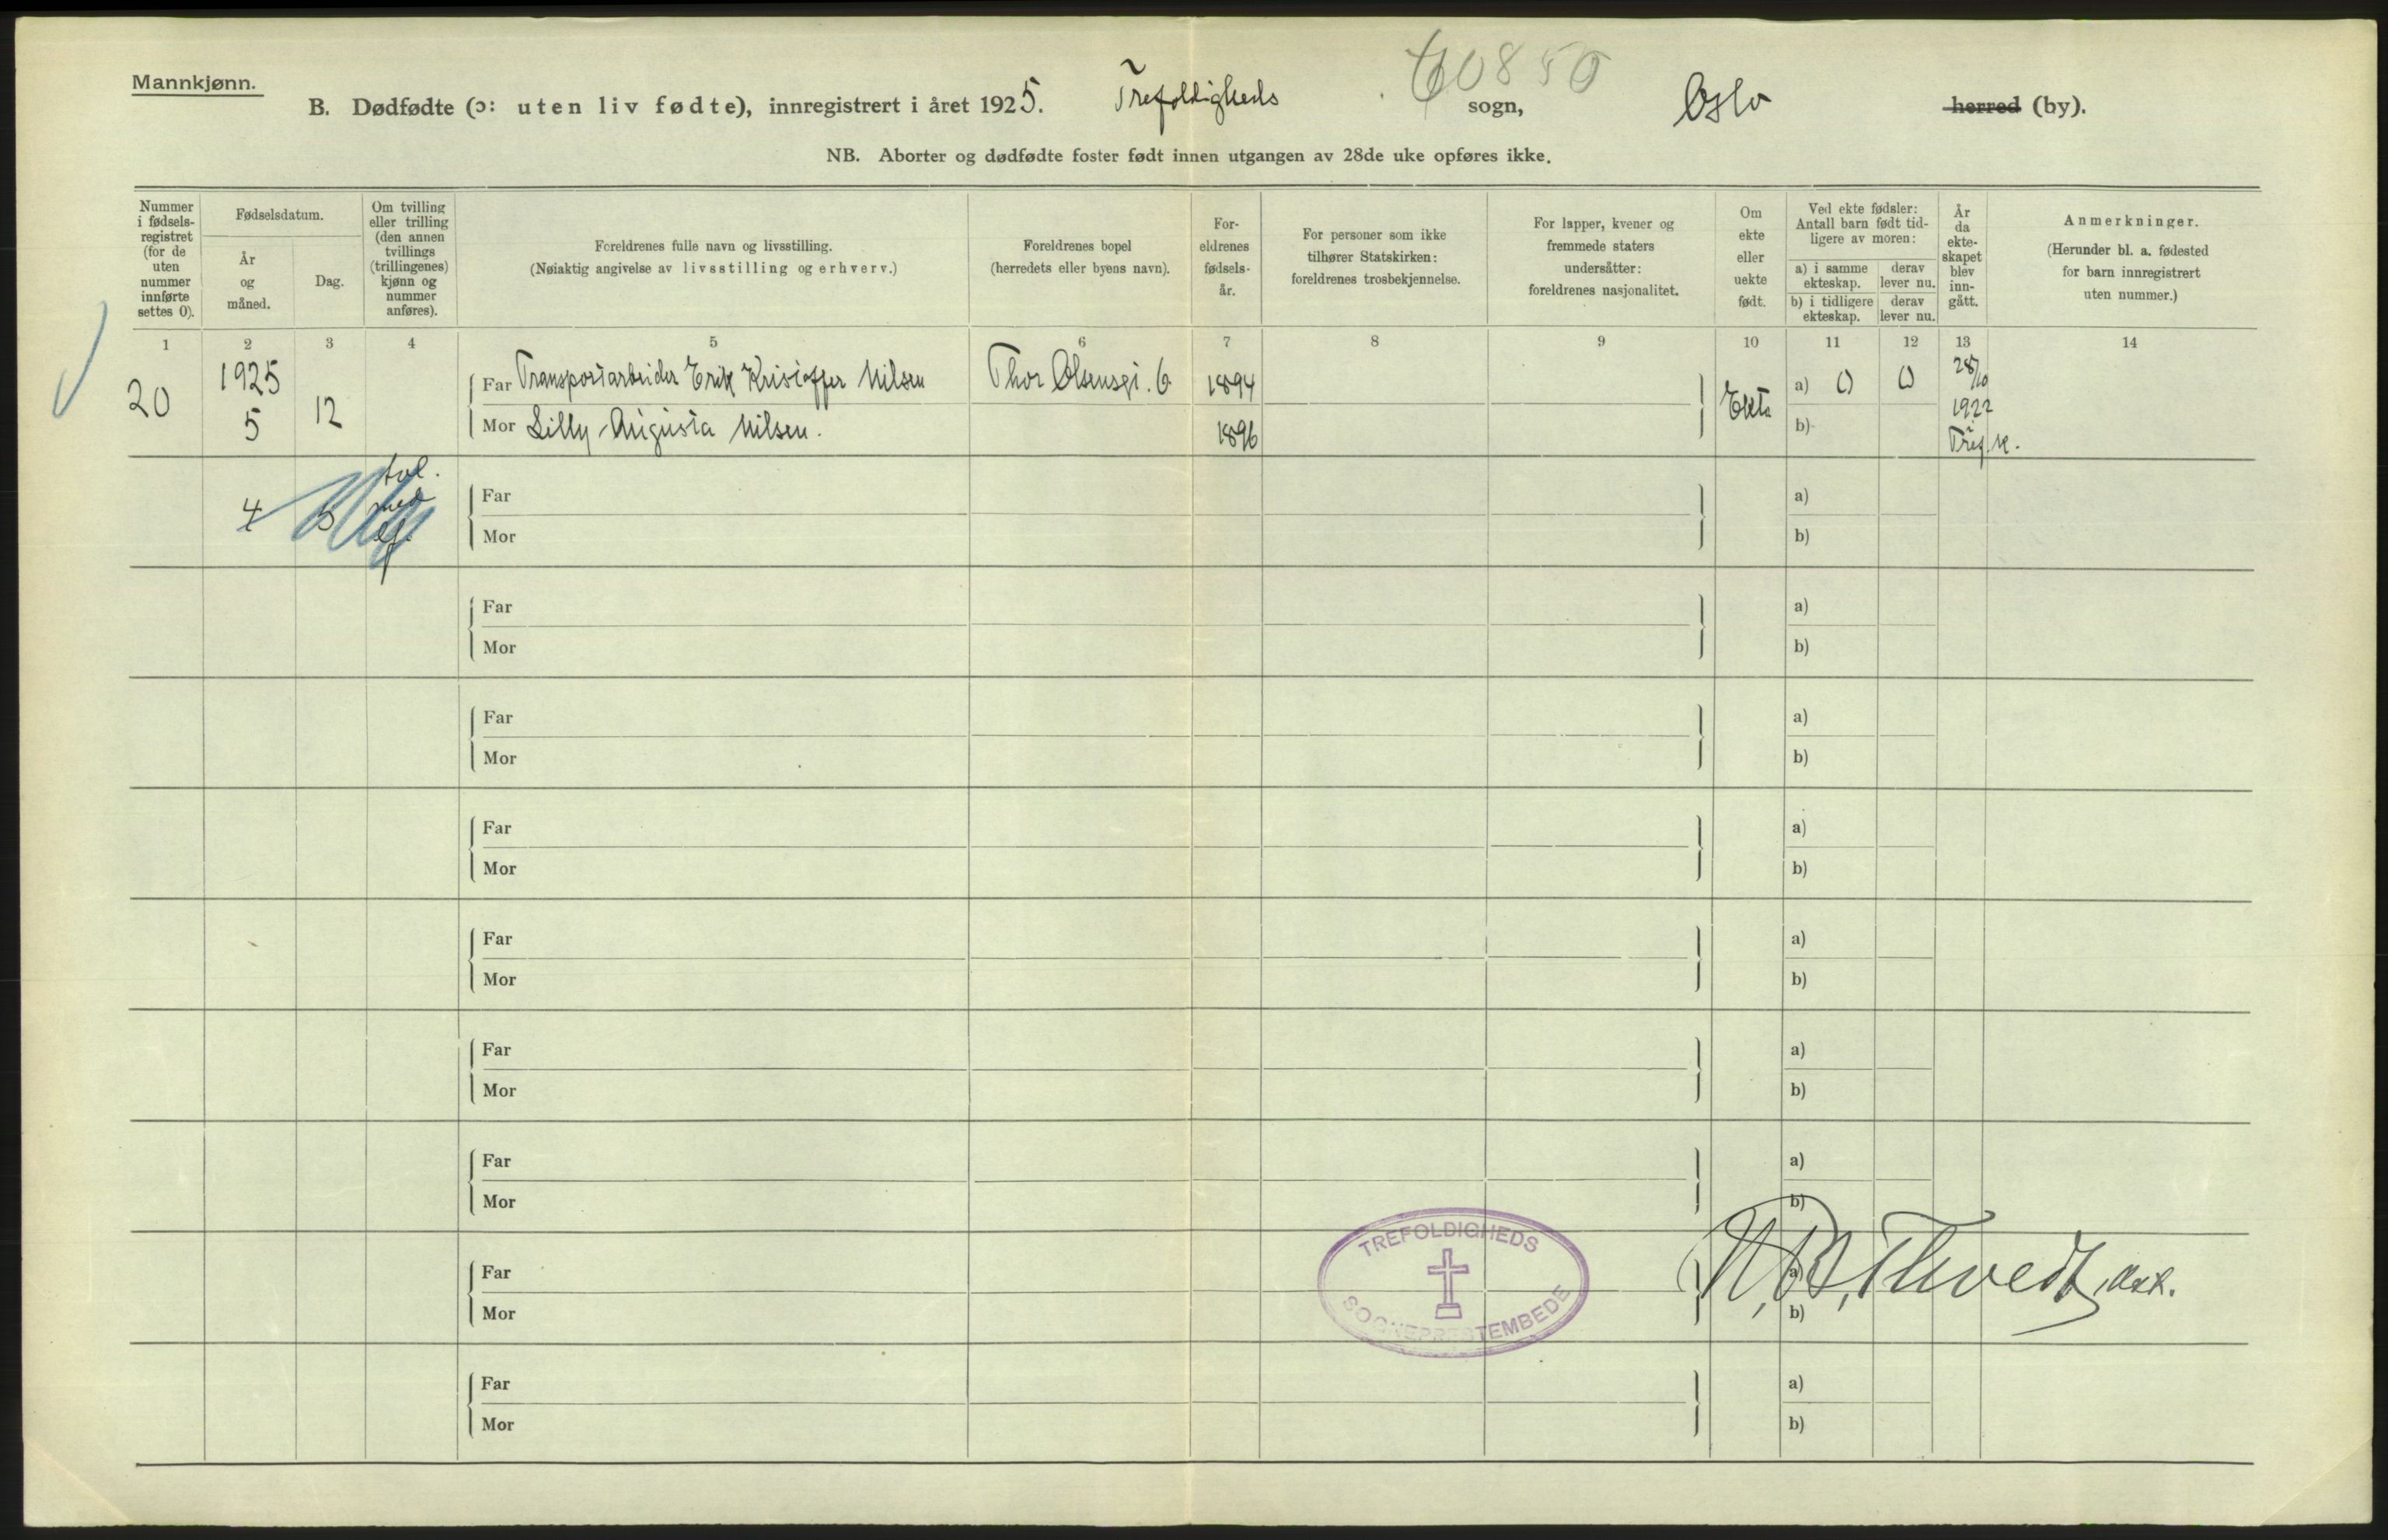 Mannkjønn.
B. Dødfødte (ɔ: uten liv fødte), innregistrert i året 1925. Trefoldigheds sogn, Oslo herred (by).
60850
NB. Aborter og dødfødte foster født innen utgangen av 28de uke opføres ikke.
Nummer i fødselsregistret (for de uten nummer innførte settes 0).
Fødselsdatum.
År og måned.
Dag.
Om tvilling eller trilling (den annen tvillings (trillingenes) kjønn og nummer anføres).
Foreldrenes fulle navn og livsstilling.
(Nøiaktig angivelse av livsstilling og erhverv.)
Foreldrenes bopel
(herredets eller byens navn).
Foreldrenes fødselsår.
For personer som ikke tilhører Statskirken: foreldrenes trosbekjennelse.
For lapper, kvener og fremmede staters undersåtter: foreldrenes nasjonalitet.
Om ekte eller uekte født.
Ved ekte fødsler: Antall barn født tidligere av moren:
a) i samme ekteskap. derav lever nu.
b) i tidligere ekteskap. derav lever nu.
År da ekteskapet blev inngått.
Anmerkninger.
(Herunder bl. a. fødested for barn innregistrert uten nummer.)
1 2 3 4 5 6 7 8 9 10 11 12 13 14
20 1925 5 12
Far Transportarbeider Erik Kristoffer Nilsen Thor Olsensgt. 6 1894 Ekte a) 0 0 28/10 1922
Mor Lilly Augusta Nilsen. 1896 b) Tref. k.
4 5
Far a)
Mor b)
Far a)
Mor b)
Far a)
Mor b)
Far a)
Mor b)
Far a)
Mor b)
Far a)
Mor b)
Far a)
Mor b)
TREFOLDIGHEDS
SOGNEPRESTEMBEDE
Far a)
Mor b)
Far a)
Mor b)